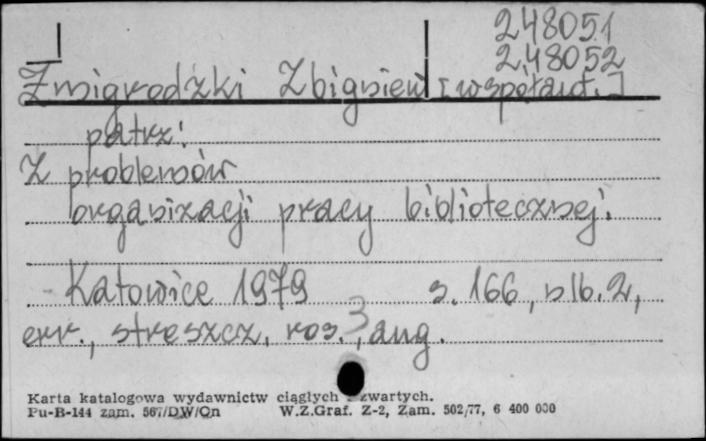 248051
248052
Żmigrodzki Zbigniew [współaut.]
patrz:
Z problemów
organizacji pracy bibliotecznej.
Katowice 1979 s. 166, nlb. 2,
err., streszcz. ros., ang.
3
Karta katalogowa wydawnictw ciągłych i zwartych.
Pu-B-144 zam. 567/DW/On W.Z.Graf. Z-2, Zam. 502/77, 6 400 000